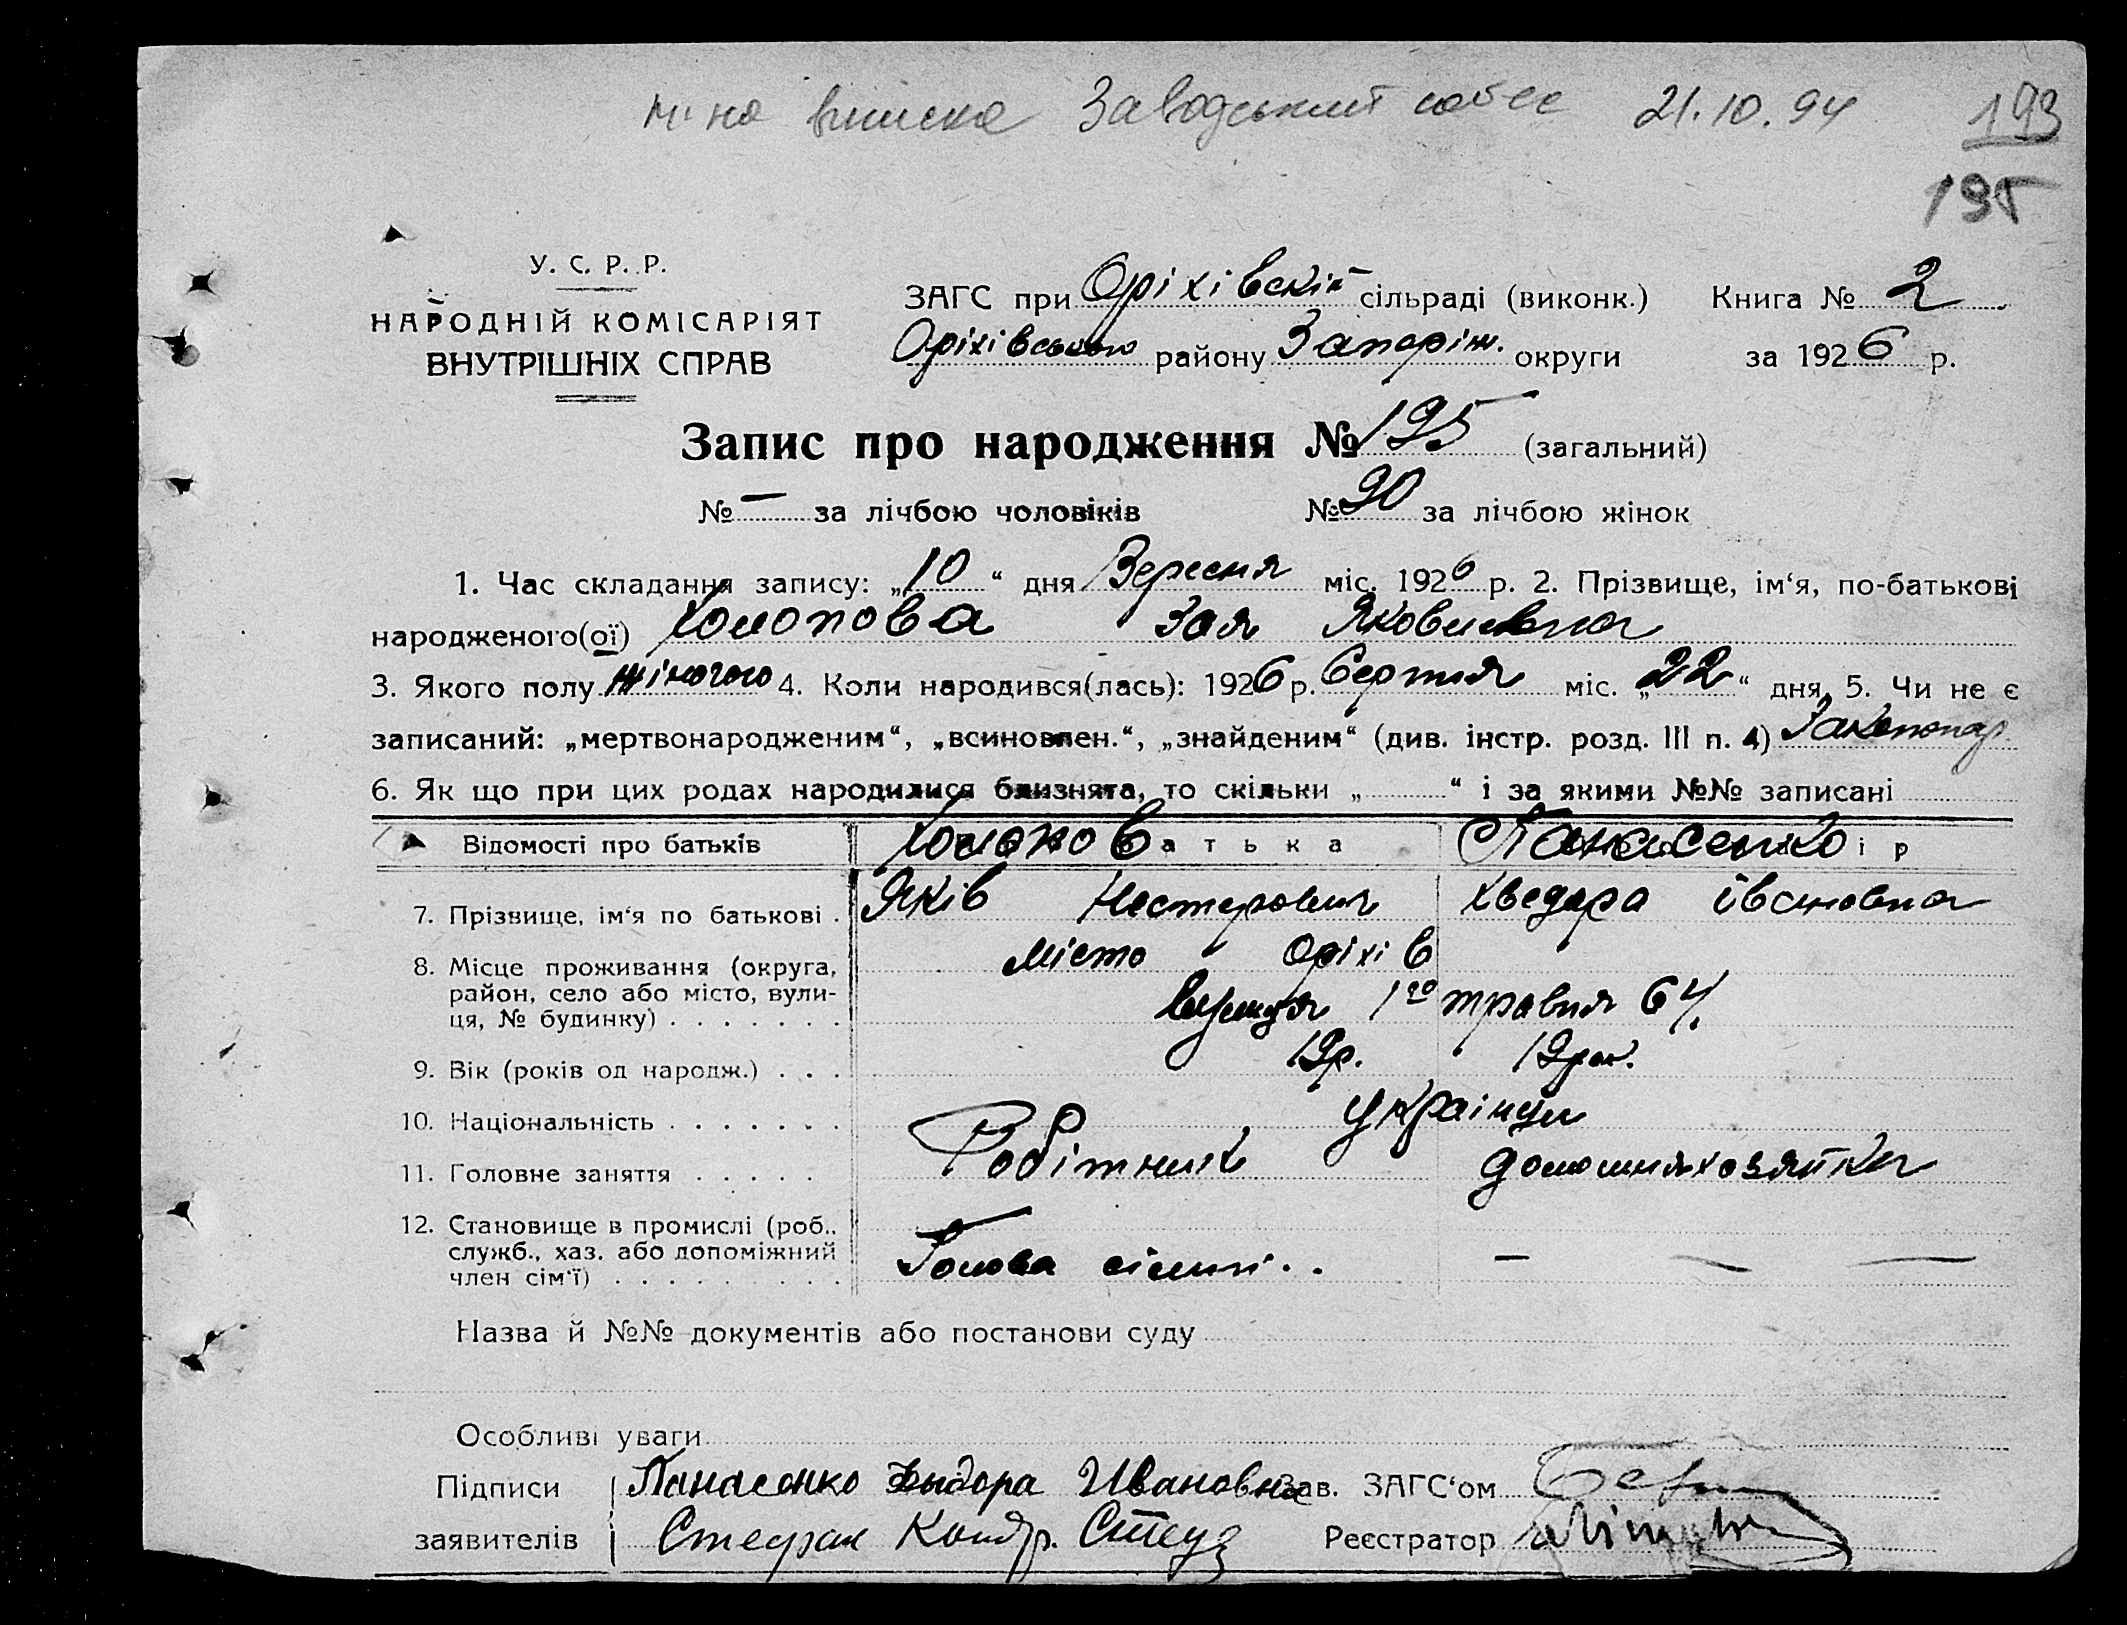 виписка Заводський собес 21.10.94 193
195
У. С. Р. Р.
НАРОДНІЙ КОМІСАРІЯТ
ВНУТРІШНІХ СПРАВ
ЗАГС при Оріхівскій сільраді (виконк.) Книга № 2
Оріхівського району Запоріж. округи за 1926 р.
Запис про народження № 195 (загальний)
№ — за лічбою чоловіків № 90 за лічбою жінок
1. Час складання запису: „10“ дня Вересня міс. 1926 р. 2. Прізвище, ім‘я, по-батькові
народженого(ої) Холопова Зоя Яковлевна
3. Якого полу жіночого 4. Коли народився(лась): 1926 р. Серпня міс. „22“ дня 5. Чи не є
записаний: „мертвонародженим“, „всиновлен.“, „знайденим“ (див. інстр. розд. III п. 4) Законнор
6. Як що при цих родах народилися близнята, то скільки „ “ і за якими №№ записані
Відомості про батьків Холопов Батька Панасенко Матір
7. Прізвище, ім‘я по батькові . Яків Нестерович Хведора Івановна
8. Місце проживання (округа, Місто Оріхів
район, село або місто, вули-
ця, № будинку) . . . . . . . Вулиця 1го травня 64
9. Вік (років од народж.) . . . 19р. 19рок.
10. Національність . . . . . . . Українци
11. Головне заняття . . . . . Робітник домошняхозяйка
12. Становище в промислі (роб.,
служб., хаз. або допоміжний Голова сімьі . . — — —
член сім‘ї) . . . . . . . . .
Назва й №№ документів або постанови суду
Особливі уваги
Підписи Панасенко Ивановна Зав. ЗАГС‘ом
заявителів Стефан Реєстратор